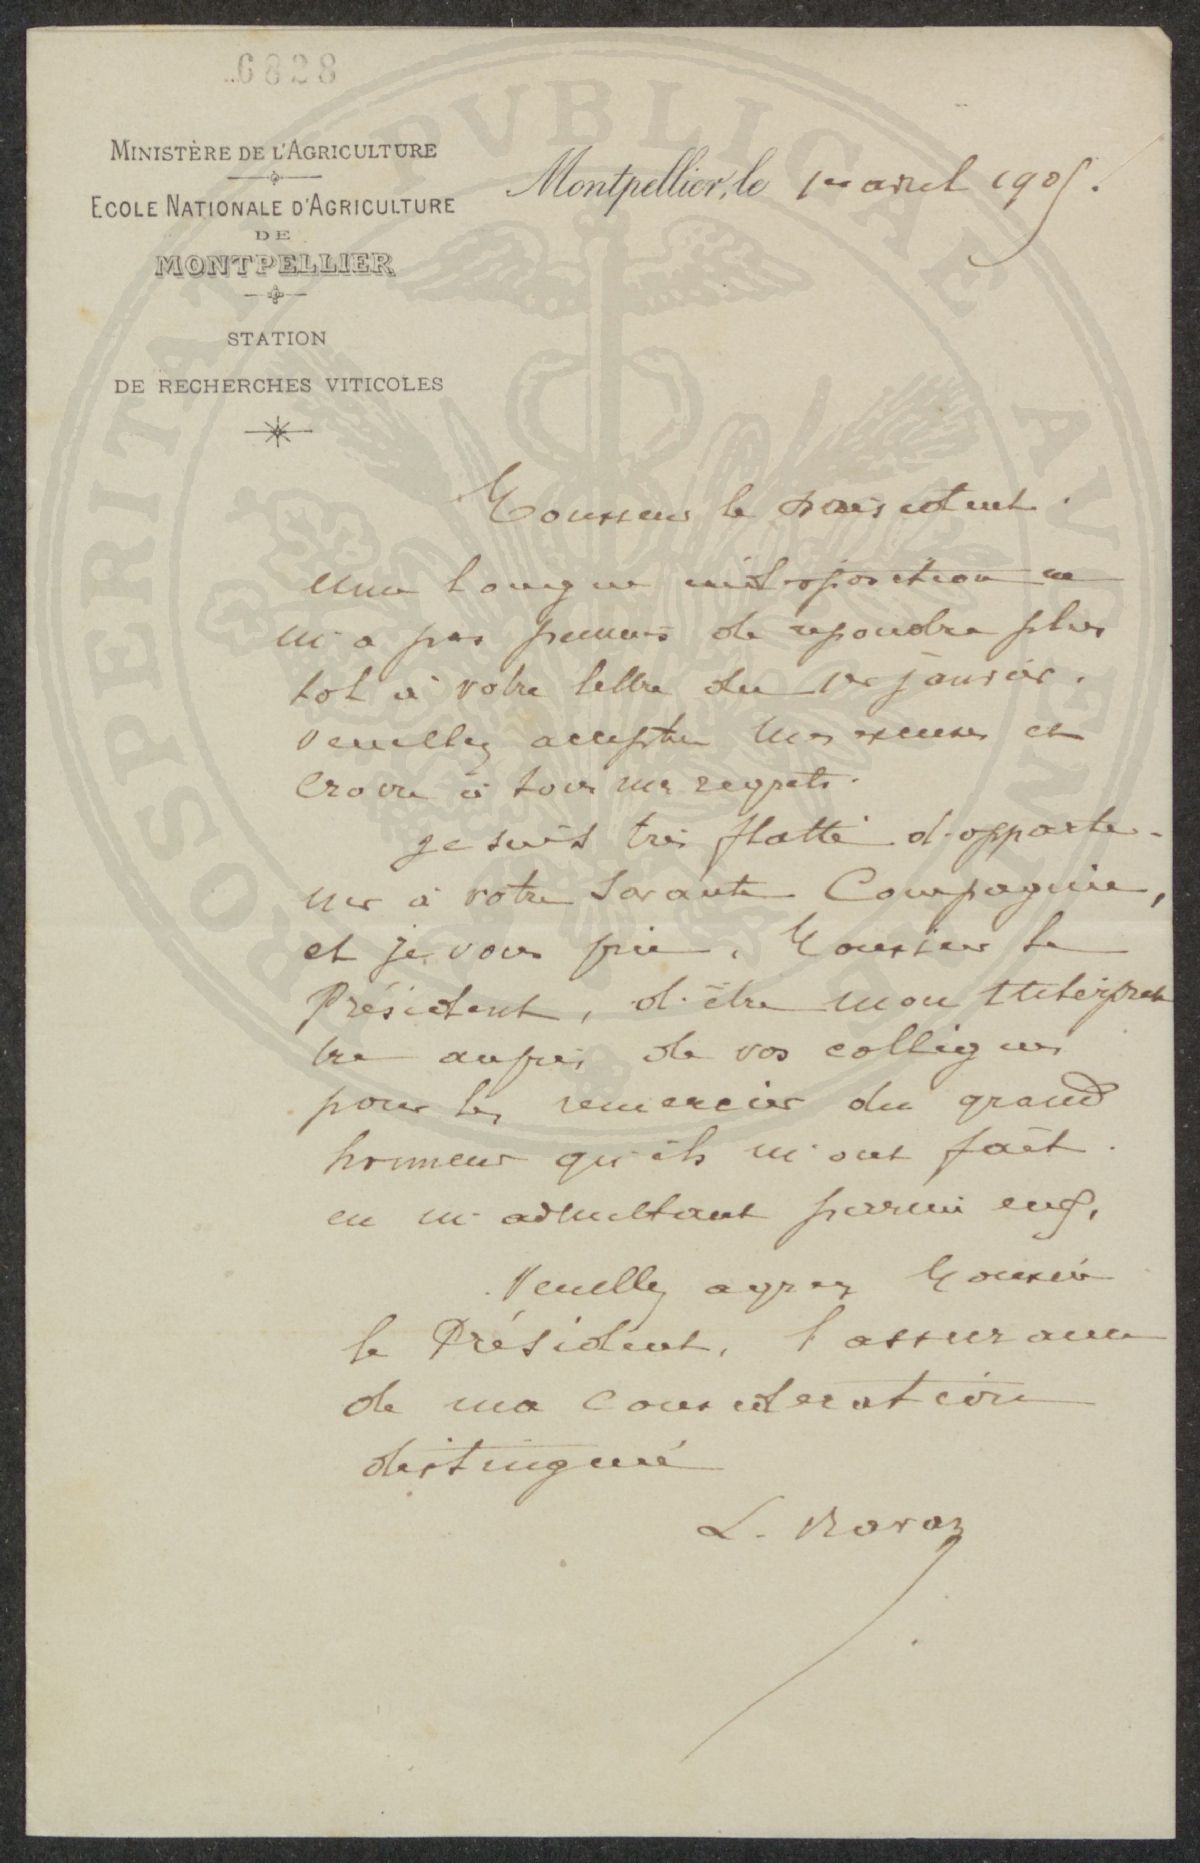 6828
MINISTÈRE DE L'AGRICULTURE
ECOLE NATIONALE D'AGRICULTURE
DE
MONTPELLIER
STATION
DE RECHERCHES VITICOLES
Montpellier, le 1er avril 1905.
PROSPERITATI PVBLICAE AVGENDAE
Monsieur le président.
Une longue indisposition ne
m'a pas permis de repondre plus
tot à votre lettre du 1er janvier.
Veuillez accepter mes excuses et
croire à tous mes regrets.
Je suis très flatté d'apparte-
nir à votre savante Compagnie,
et je vous prie, Monsieur le
Président, d'être mon interpre
tre auprès de vos collègues
pour les remercier du grand
honneur qu'ils m'ont fait.
en m'admettant parmi eux,
Veuillez agreer Monsieur
le Président, l'assurance
de ma consideration
distinguée
L. Ravaz